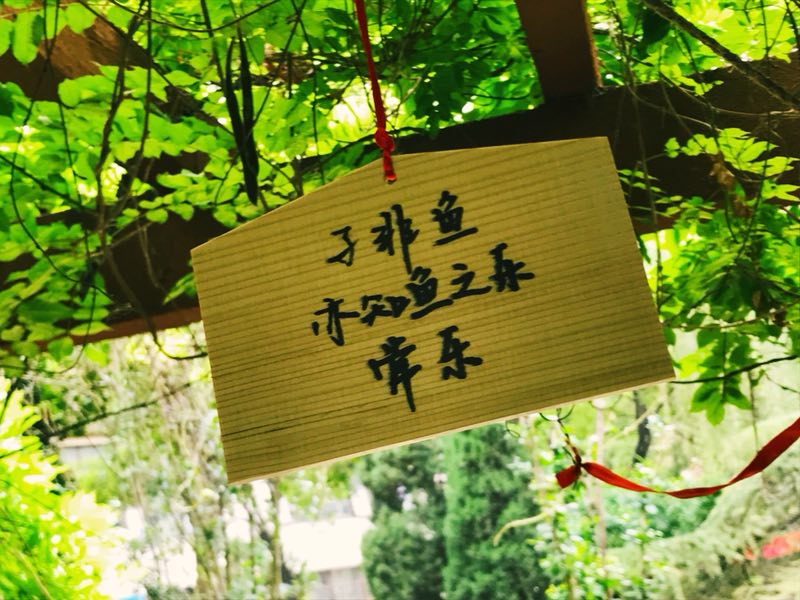 子非鱼
亦知鱼之乐
常乐